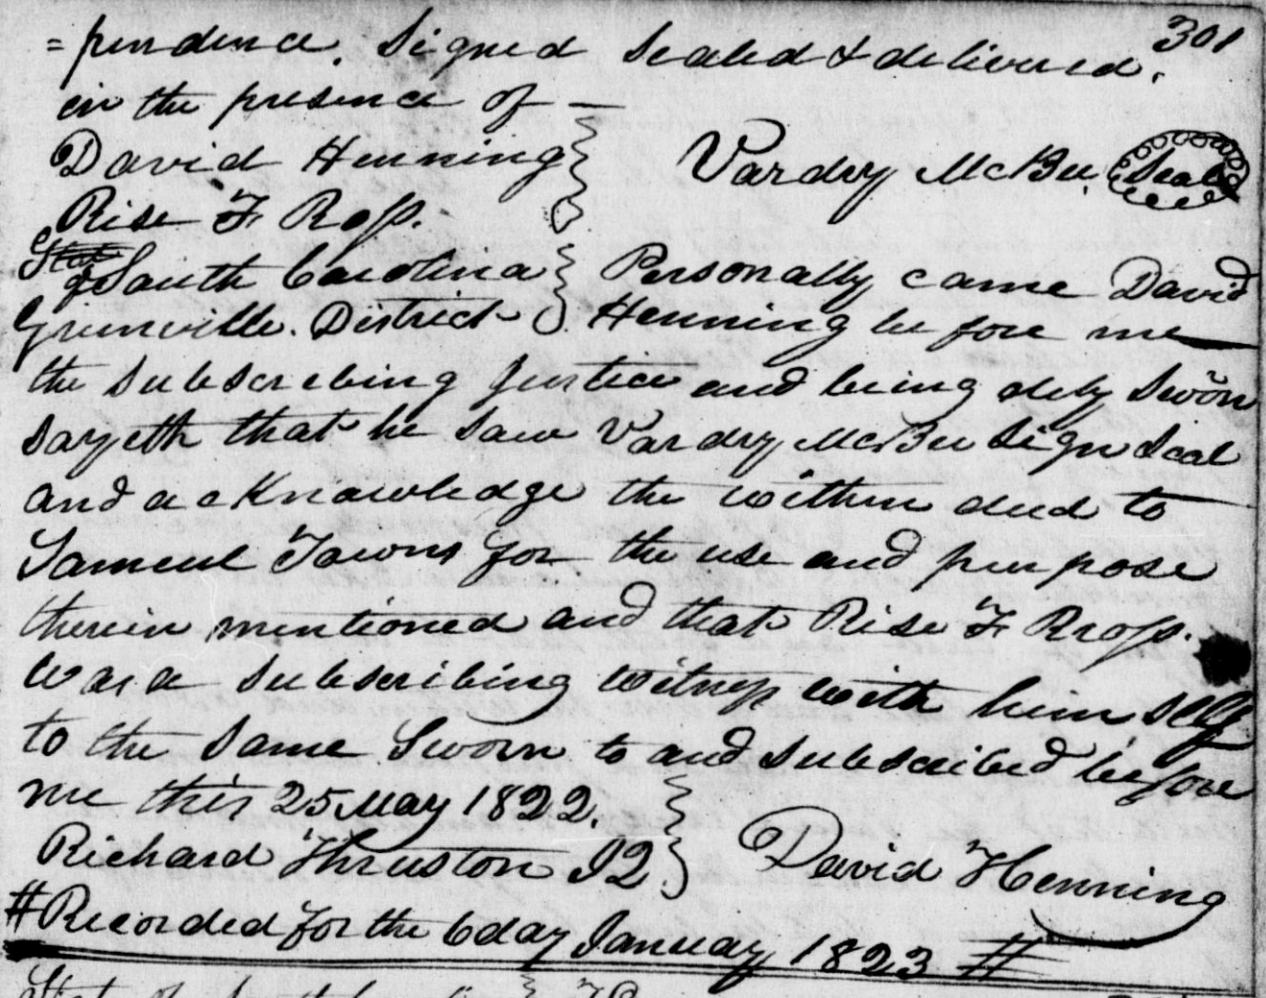 301
=pendence. Signed Sealed & delivered.
in the presence of —
David Henning } Vardry McBee (Seal)
Rise F Ross.
State of South Carolina } Personally came David
Greenville. District } Henning before me
the subscribing Justice and being duly Sworn
sayeth that he saw Vardry McBee Sign Seal
and acknowledge the within deed to
Sameul Towns for the use and purpose
therein mentioned and that Rise F Rross.
was a subscribing witness with himself
to the same Sworn to and subscribed before
me this 25 May 1822. }
Richard Thruston JQ } David Henning
# Recorded for the 6 day January 1823 #